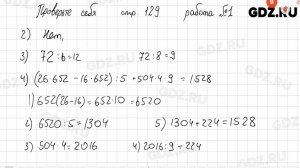 Проверьте себя стр 129 работа №1
GDZ.RU
2) Нет,
3) 72:6=12 72:8=9
4) (26 652 - 16 652) : 5 + 504·4 - 9 = 1528
1) 652(26-16)=652·10=6520
2) 6520:5=1304 5) 1304+224=1528
3) 504·4=2016 4) 2016:9=224
GDZ.RU